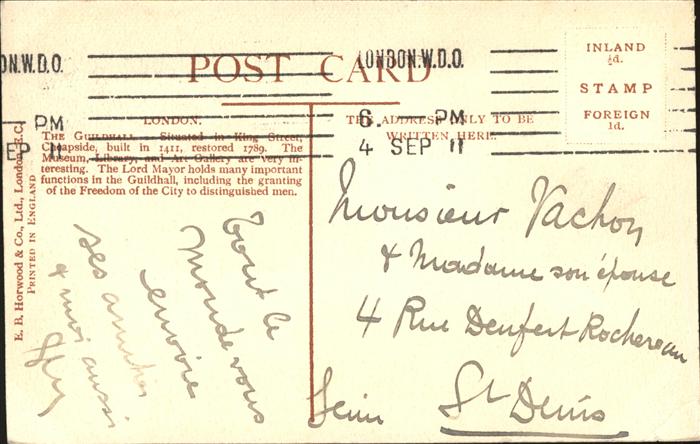 LONDON.W.D.O.
6. PM
4 SEP 11
ON.W.D.O.
PM
EP 11
POST CARD
INLAND
½d.
STAMP
FOREIGN
1d.
LONDON.
THE GUILDHALL. Situated in King Street,
Cheapside, built in 1411, restored 1789. The
Museum, Library, and Art Gallery are very in-
teresting. The Lord Mayor holds many important
functions in the Guildhall, including the granting
of the Freedom of the City to distinguished men.
THE ADDRESS ONLY TO BE
WRITTEN HERE.
E. B. Horwood & Co., Ltd., London, E.C.
PRINTED IN ENGLAND
Tout le
Monde vous
envoie
ses amitiés
& moi aussi
Monsieur Vachon
& Madame son épouse
4 Rue Denfert Rochereau
St Denis
Seine